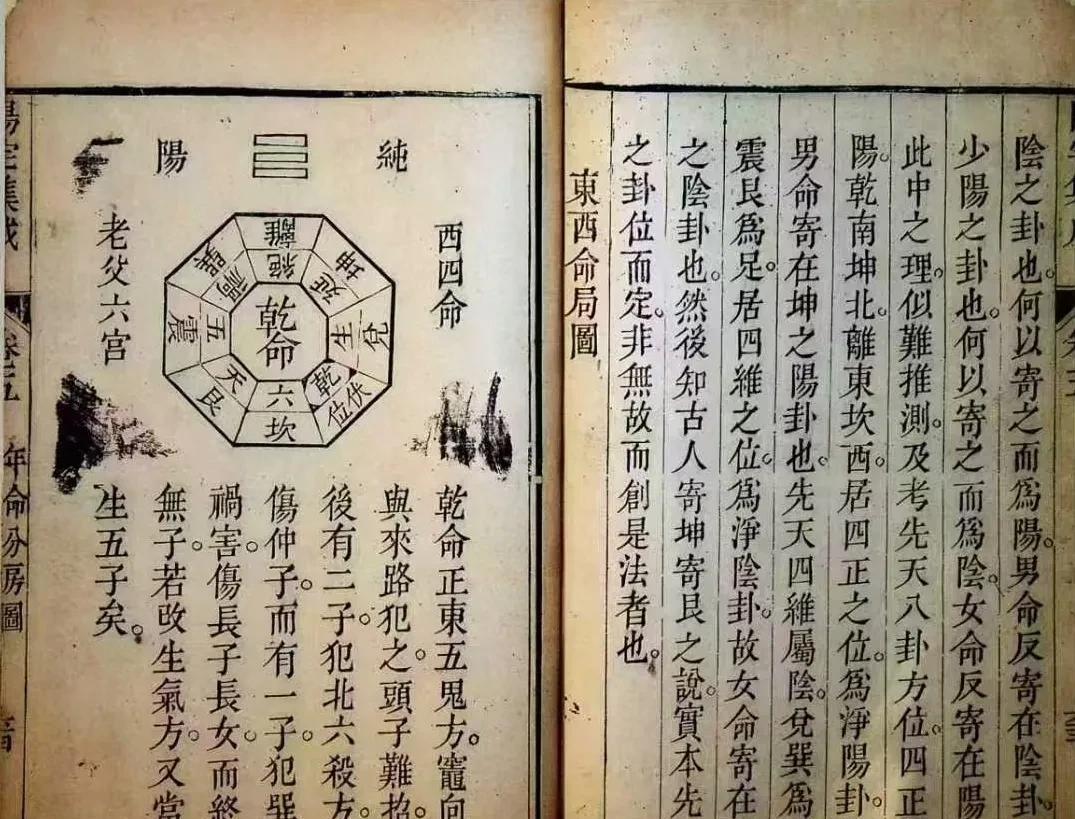 陰之卦也。何以寄之而爲陽。男命反寄在陰卦。
少陽之卦也。何以寄之而爲陰。女命反寄在陽
此中之理。似難推測。及考先天八卦方位。四正
陽。乾南坤北。離東坎西。居四正之位。爲淨陽卦。
男命寄在坤之陽卦也。先天四維屬陰。兌巽爲
震艮爲足。居四維之位。爲淨陰卦。故女命寄在
之陰卦也。然後知古人寄坤寄艮之說。實本先
之卦位而定。非無故而創是法者也。
東西命局圖
純
陽
西四命
老父六宮
乾命
離
絕
坤
延
兌
生
乾
伏位
坎
六
艮
天
震
五
巽
禍
乾命正東五鬼方。竈向
與來路犯之。頭子難招
後有二子。犯北六殺方。
傷仲子。而有一子。犯巽
禍害。傷長子長女。而終
無子。若改生氣方。又當
生五子矣。
陽宅集成
卷五
年命分房圖